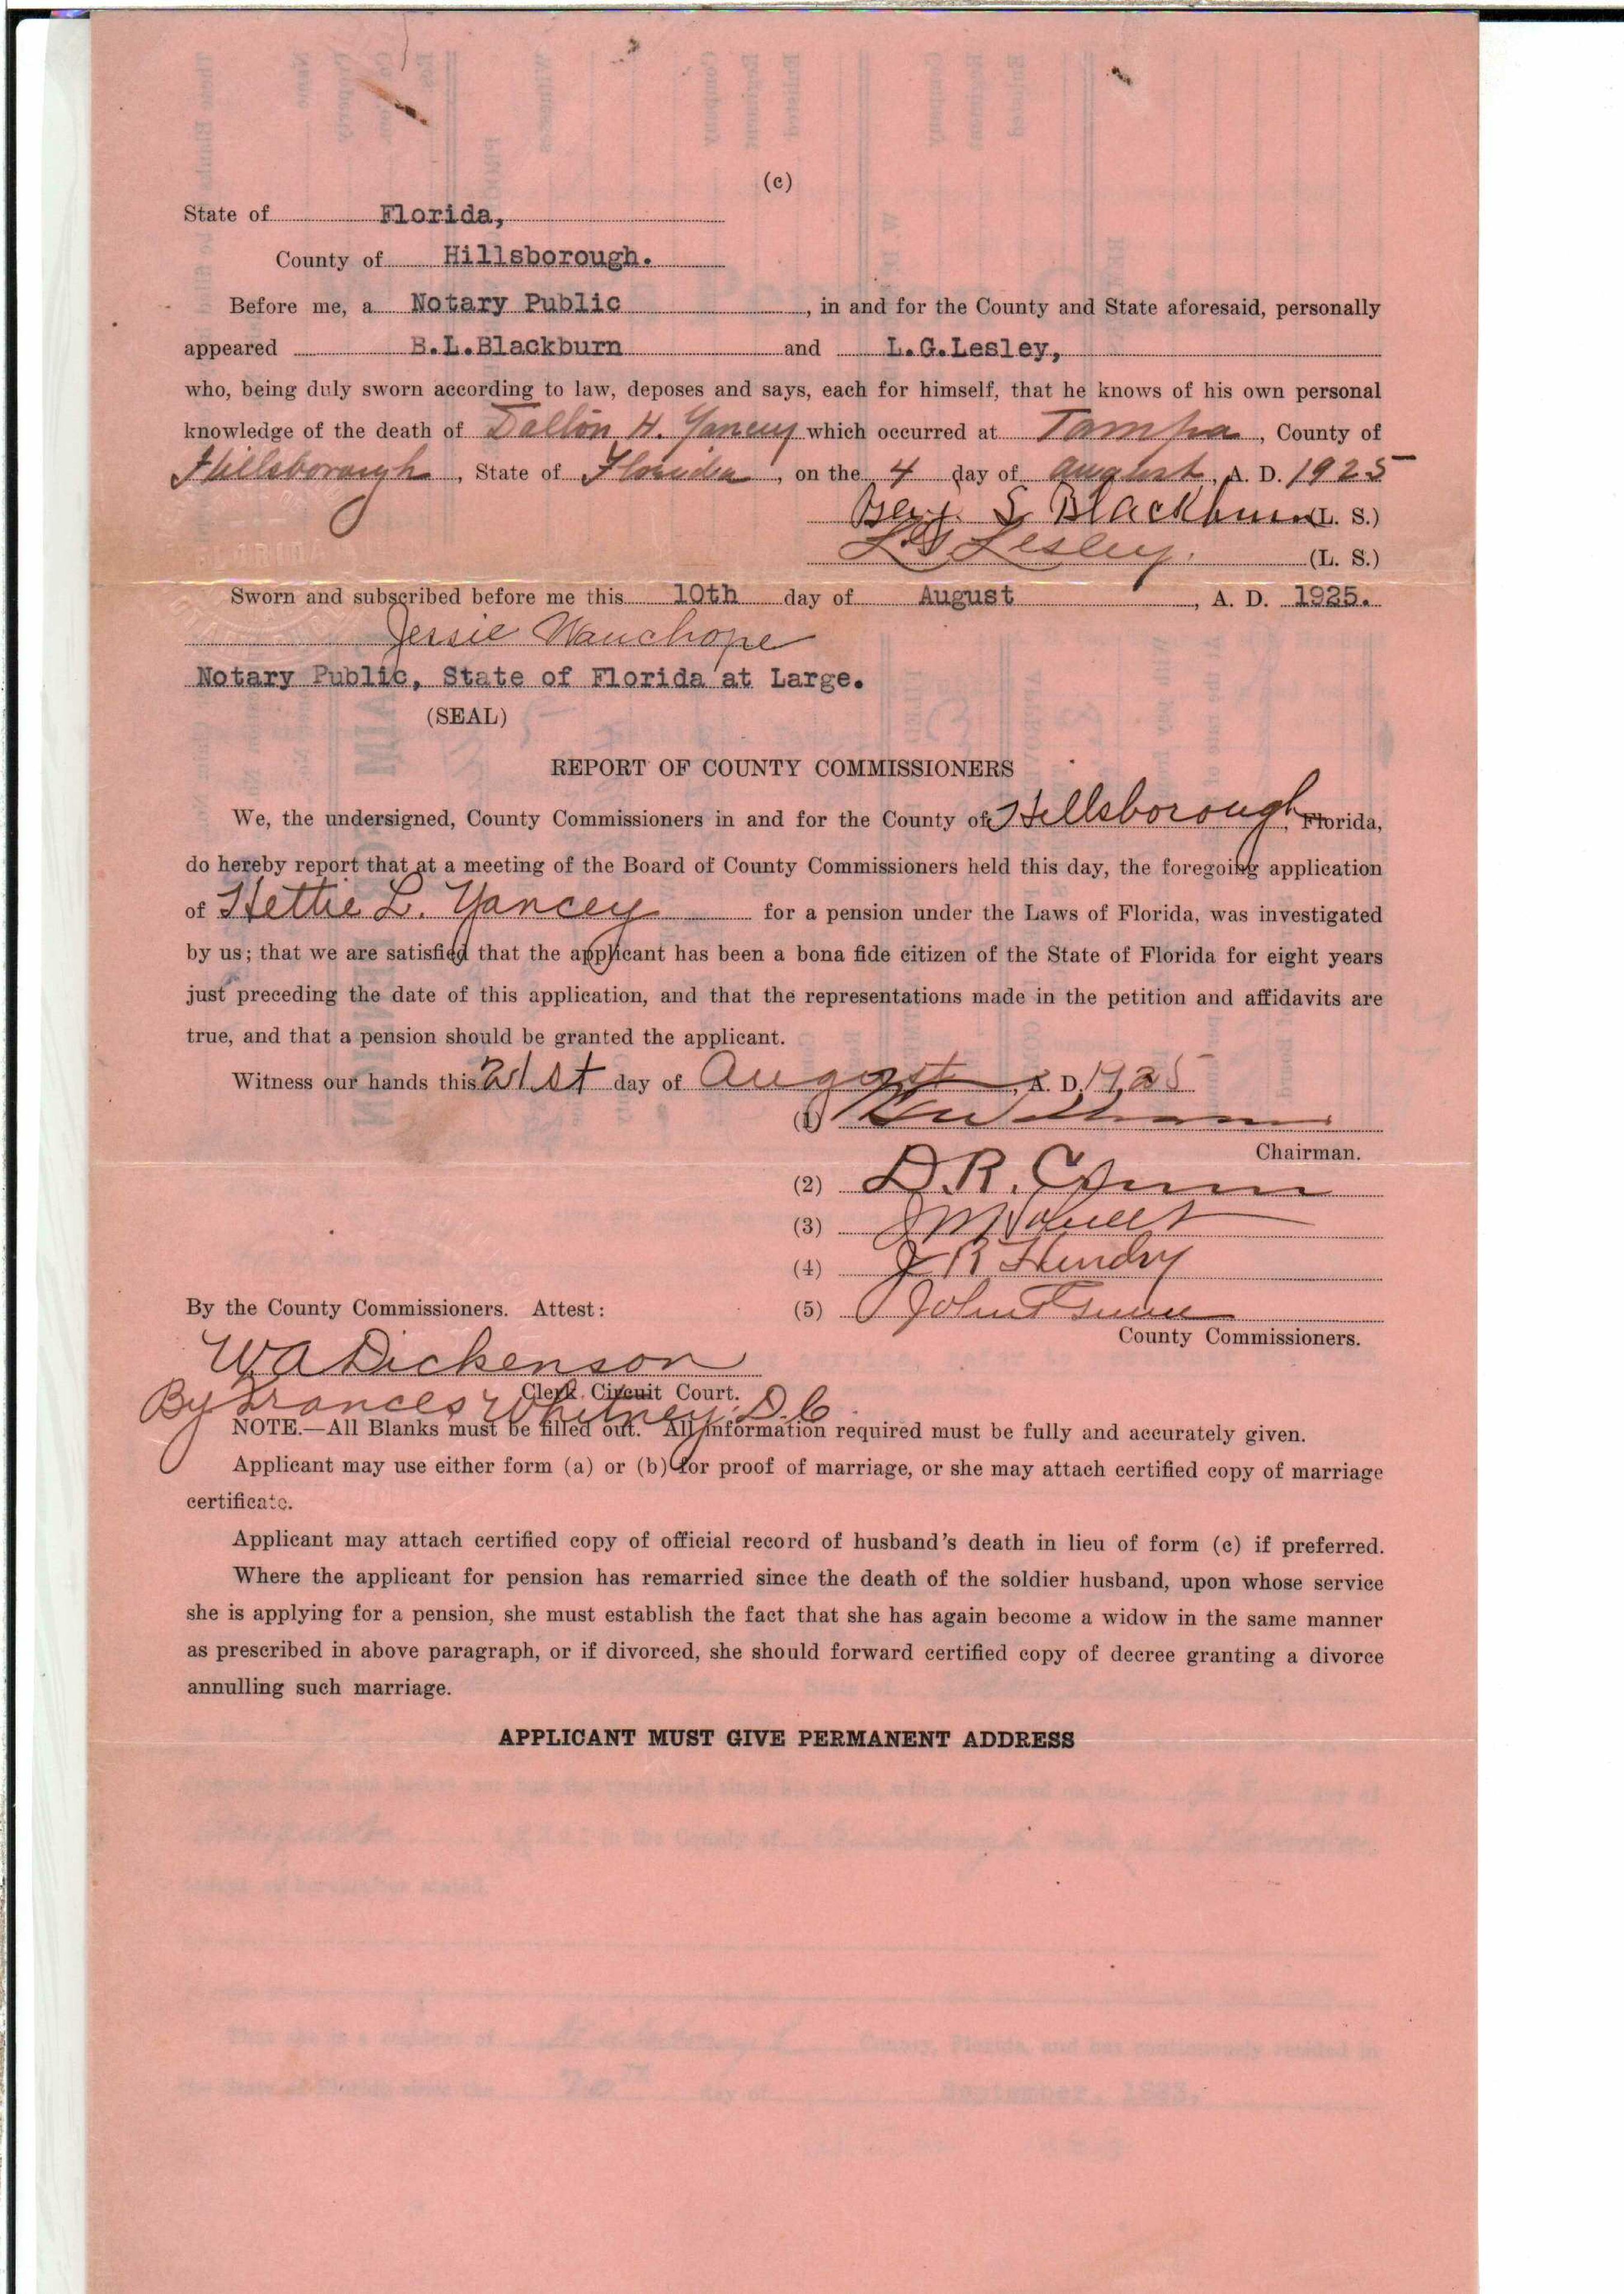 (c)
State of Florida,
County of Hillsborough.
Before me, a Notary Public, in and for the County and State aforesaid, personally
appeared B.L.Blackburn and L.G.Lesley,
who, being duly sworn according to law, deposes and says, each for himself, that he knows of his own personal
knowledge of the death of H. Yancey which occurred at Tampa, County of
Hillsborough, State of Florida, on the 4 day of August, A. D. 1925
Benj. L Blackburn (L. S.)
L G Lesley. (L. S.)
Sworn and subscribed before me this 10th day of August, A. D. 1925.
Jessie Wauchope
Notary Public, State of Florida at Large.
(SEAL)
REPORT OF COUNTY COMMISSIONERS
We, the undersigned, County Commissioners in and for the County of Hillsborough, Florida,
do hereby report that at a meeting of the Board of County Commissioners held this day, the foregoing application
of Hettie L. Yancey for a pension under the Laws of Florida, was investigated
by us; that we are satisfied that the applicant has been a bona fide citizen of the State of Florida for eight years
just preceding the date of this application, and that the representations made in the petition and affidavits are
true, and that a pension should be granted the applicant.
Witness our hands this 21st day of August, A. D. 1925
(1)
Chairman.
(2) D.R.
(3) J M
(4) J R Hendry
(5) John T
County Commissioners.
By the County Commissioners. Attest:
W A Dickenson
Clerk Circuit Court.
By Frances Whitney, D.C.
NOTE.—All Blanks must be filled out. All information required must be fully and accurately given.
Applicant may use either form (a) or (b) for proof of marriage, or she may attach certified copy of marriage
certificate.
Applicant may attach certified copy of official record of husband's death in lieu of form (c) if preferred.
Where the applicant for pension has remarried since the death of the soldier husband, upon whose service
she is applying for a pension, she must establish the fact that she has again become a widow in the same manner
as prescribed in above paragraph, or if divorced, she should forward certified copy of decree granting a divorce
annulling such marriage.
APPLICANT MUST GIVE PERMANENT ADDRESS